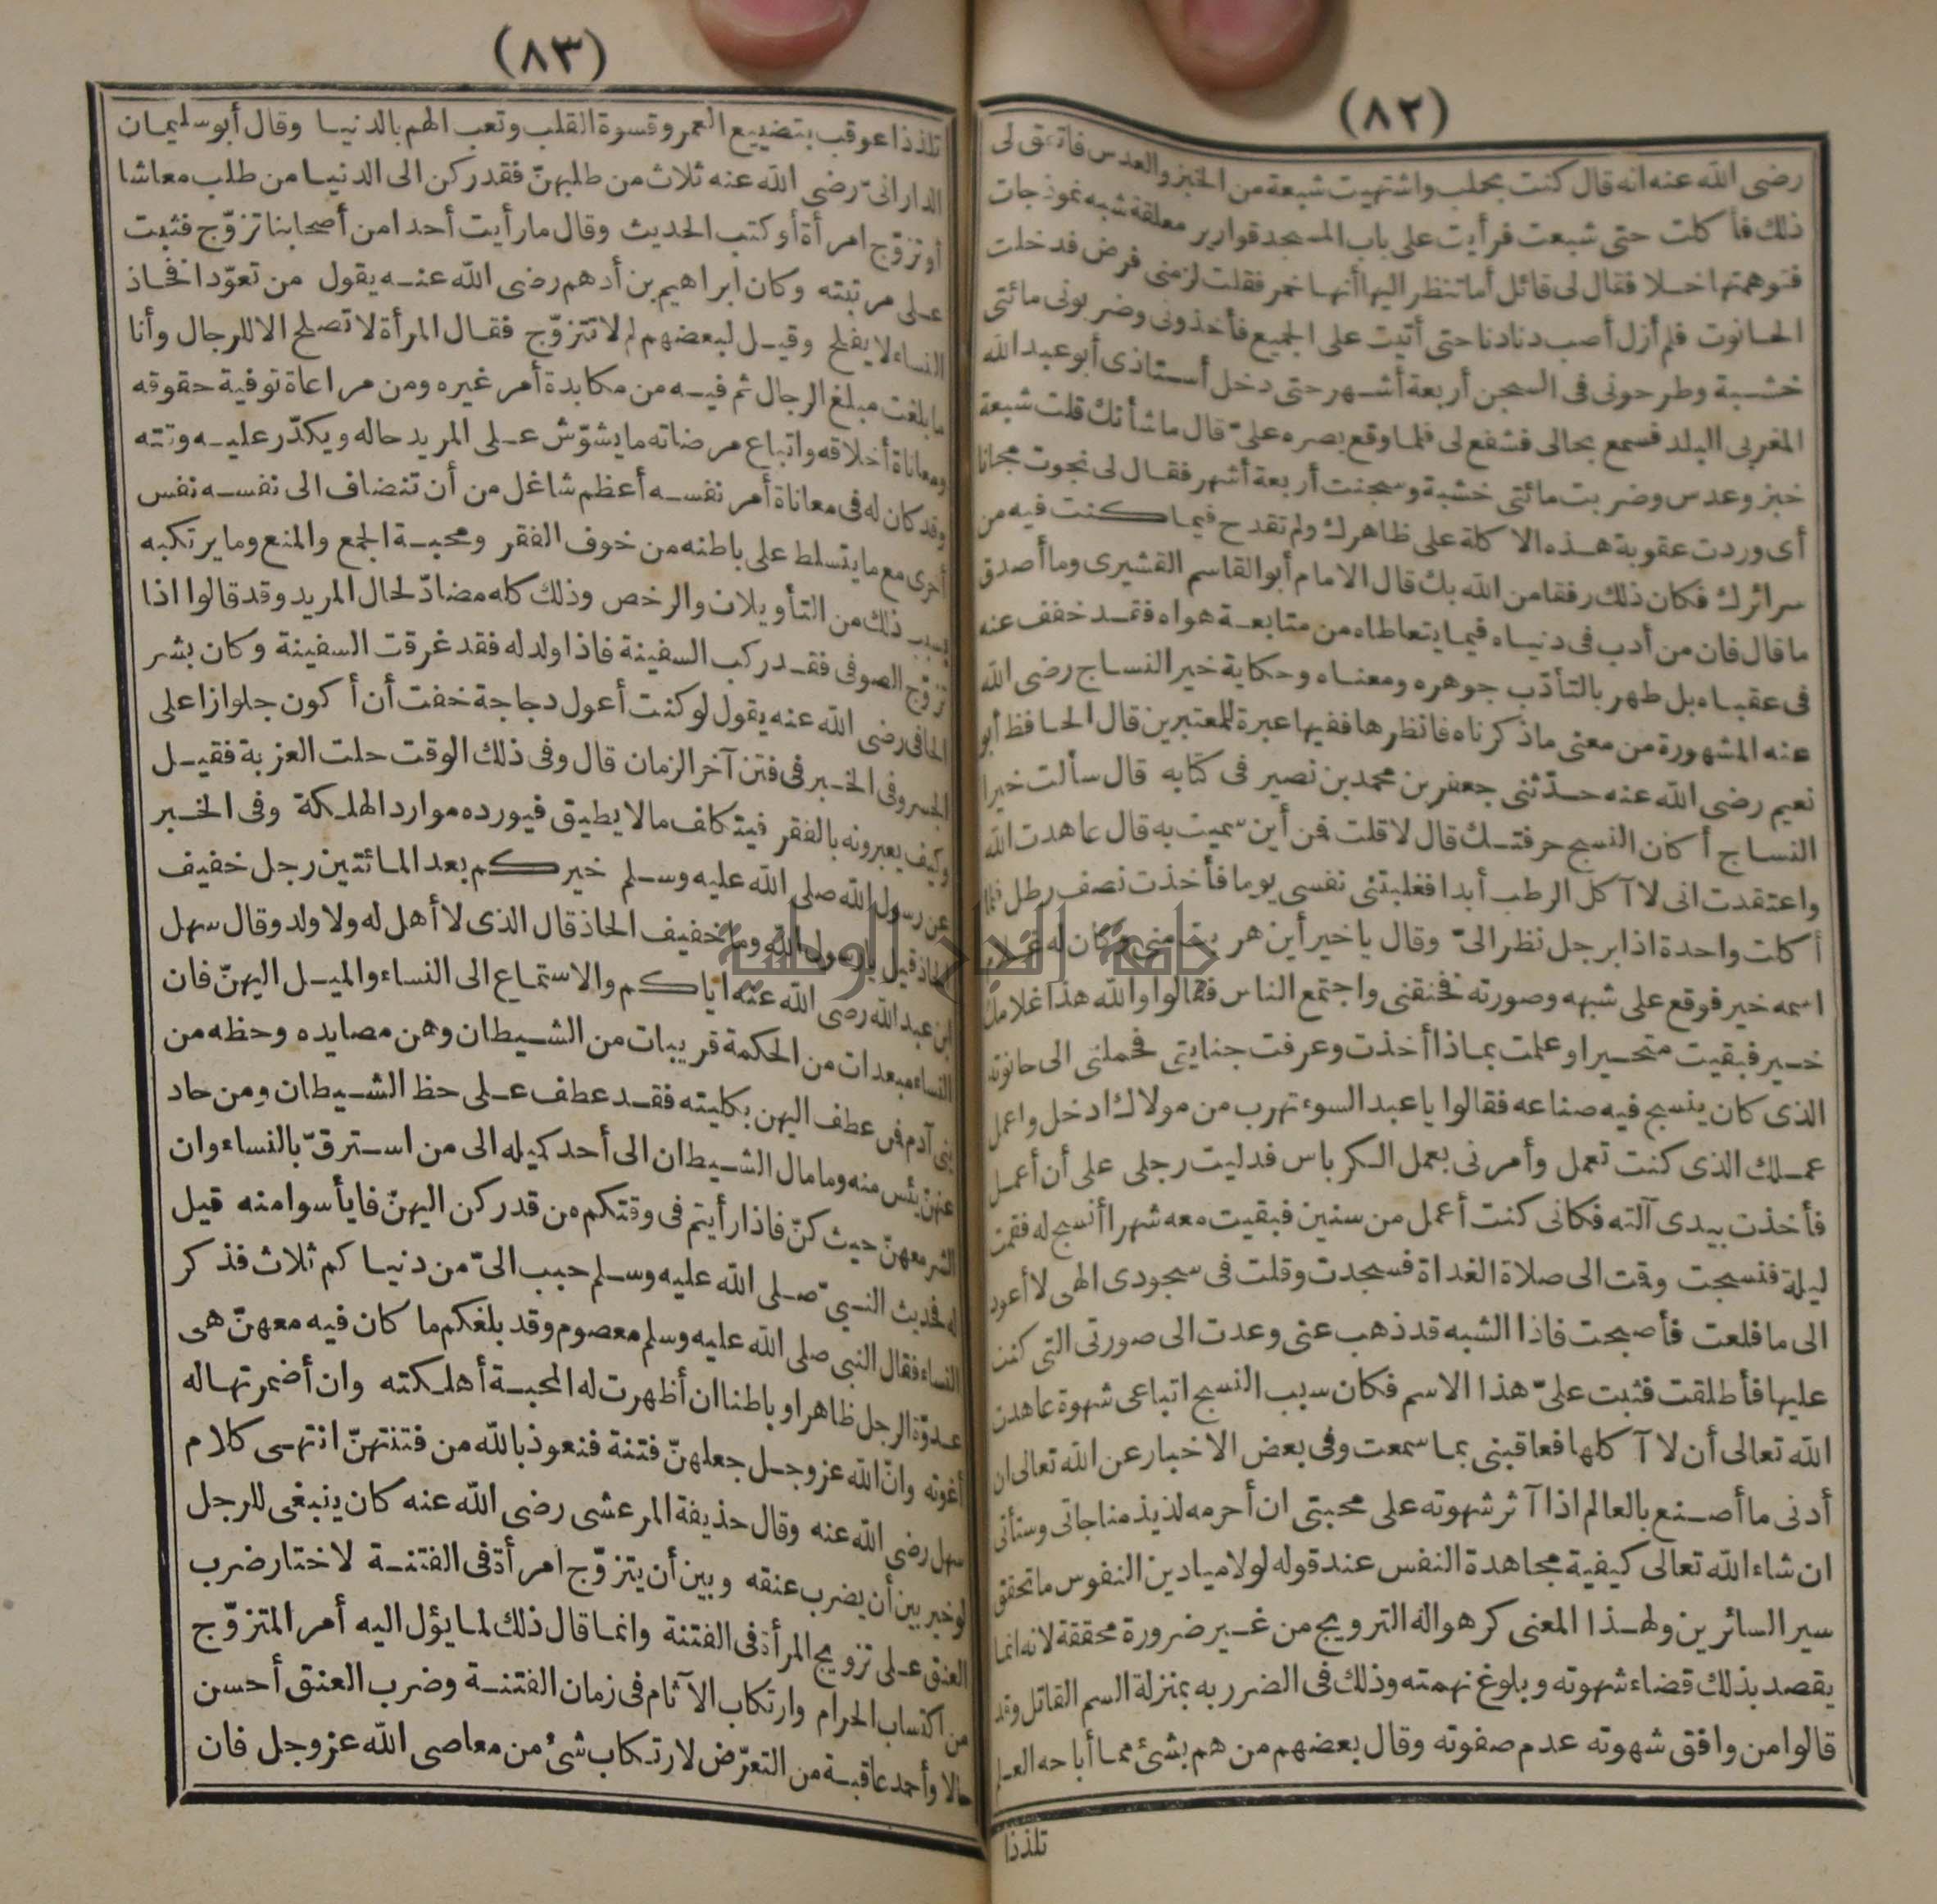 (٨٢)
رضى الله عنه انه قال كنت بحلب واشتهيت شبعة من الخبز والعدس فاتفق لى
ذلك فأكلت حتى شبعت فرأيت على باب المسجد قوارير معلقة شبه نموذجات
فتوهمتها خلا فقال لى قائل أما تنظر اليها أنها خمر فقلت لزمنى فرض فدخلت
الحانوت فلم أزل أصب دنا دنا حتى أتيت على الجميع فأخذونى وضربونى مائتى
خشبة وطرحونى فى السجن أربعة أشهر حتى دخل أستاذى أبو عبد الله
المغربى البلد فسمع بحالى فشفع لى فلما وقع بصره علىّ قال ما شأنك قلت شبعة
خبز وعدس وضربت مائتى خشبة وسجنت أربعة أشهر فقال لى نجوت مجانا
أى وردت عقوبة هذه الاكلة على ظاهرك ولم تقدح فيما كنت فيه من
سرائرك فكان ذلك رفقا من الله بك قال الامام أبو القاسم القشيرى وما أصدق
ما قال فان من أدب فى دنياه فيما يتعاطاه من متابعة هواه فقد خفف عنه
فى عقباه بل طهر بالتأدّب جوهره ومعناه وحكاية خير النساج رضى الله
عنه المشهورة من معنى ما ذكرناه فانظرها ففيها عبرة للمعتبرين قال الحافظ أبو
نعيم رضى الله عنه حدّثنى جعفر بن محمد بن نصير فى كتابه قال سألت خيرا
النساج أكان النسج حرفتك قال لا قلت فمن أين سميت به قال عاهدت الله
واعتقدت انى لا آكل الرطب أبدا فغلبتنى نفسى يوما فأخذت نصف رطل فلما
أكلت واحدة اذا برجل نظر الىّ وقال يا خير أين هربت منى وكان له غلام
اسمه خير فوقع على شبهه وصورته فخنقنى واجتمع الناس فقالوا والله هذا غلامك
خير فبقيت متحيرا وعلمت بماذا أخذت وعرفت جنايتى فحملنى الى حانوته
الذى كان ينسج فيه صناعه فقالوا يا عبد السوء تهرب من مولاك ادخل واعمل
عملك الذى كنت تعمل وأمرنى بعمل الكرباس فدليت رجلى على أن أعمل
فأخذت بيدى آلته فكانى كنت أعمل من سنين فبقيت معه شهرا أنسج له فقمت
ليلة فنسجت وقمت الى صلاة الغداة فسجدت وقلت فى سجودى الهى لا أعود
الى ما فعلت فأصبحت فاذا الشبه قد ذهب عنى وعدت الى صورتى التى كنت
عليها فأطلقت فثبت علىّ هذا الاسم فكان سبب النسج اتباعى شهوة عاهدت
الله تعالى أن لا آكلها فعاقبنى بما سمعت وفى بعض الاخبار عن الله تعالى ان
أدنى ما أصنع بالعالم اذا آثر شهوته على محبتى ان أحرمه لذيذ مناجاتى وستأتى
ان شاء الله تعالى كيفية مجاهدة النفس عند قوله لولا ميادين النفوس ما تحقق
سير السائرين ولهذا المعنى كرهوا له الترويج من غير ضرورة محققة لانه انما
يقصد بذلك قضاء شهوته وبلوغ نهمته وذلك فى الضرر به بمنزلة السم القاتل وقد
قالوا من وافق شهوته عدم صفوته وقال بعضهم من هم بشئ مما أباحه العلم
تلذذا
(٨٣)
تلذذا عوقب بتضييع العمر وقسوة القلب وتعب الهم بالدنيا وقال أبو سليمان
الدارانىّ رضى الله عنه ثلاث من طلبهنّ فقد ركن الى الدنيا من طلب معاشا
أو تزوّج امرأة أو كتب الحديث وقال ما رأيت أحدا من أصحابنا تزوّج فثبت
على مرتبته وكان ابراهيم بن أدهم رضى الله عنه يقول من تعوّد أفخاذ
النساء لا يفلح وقيل لبعضهم لم لا تتزوّج فقال المرأة لا تصلح الا للرجال وأنا
ما بلغت مبلغ الرجال ثم فيه من مكابدة أمر غيره ومن مراعاة توفية حقوقه
ومعاناة أخلاقه واتباع مرضاته ما يشوّش على المريد حاله ويكدّر عليه وقته
وقد كان له فى معاناة أمر نفسه أعظم شاغل من أن تنضاف الى نفسه نفس
أخرى مع ما يتسلط على باطنه من خوف الفقر ومحبة الجمع والمنع وما يرتكبه
بسبب ذلك من التأويلات والرخص وذلك كله مضادّ لحال المريد وقد قالوا اذا
تزوّج الصوفى فقد ركب السفينة فاذا ولد له فقد غرقت السفينة وكان بشر
الحافى رضى الله عنه يقول لو كنت أعول دجاجة خفت أن أكون جلوازا على
الجسر وفى الخبر فى فتن آخر الزمان قال وفى ذلك الوقت حلت العزبة فقيل
وكيف يعيرونه بالفقر فيتكلف ما لا يطيق فيورده موارد الهلكة وفى الخبر
عن رسول الله صلى الله عليه وسلم خيركم بعد المائتين رجل خفيف
الحاذ قيل يا رسول الله وما خفيف الحاذ قال الذى لا أهل له ولا ولد وقال سهل
ابن عبد الله رضى الله عنه اياكم والاستماع الى النساء والميل اليهنّ فان
النساء مبعدات من الحكمة قريبات من الشيطان وهن مصايده وحظه من
بنى آدم فمن عطف اليهن بكليته فقد عطف على حظ الشيطان ومن حاد
عنهنّ يئس منه وما مال الشيطان الى أحد كميله الى من استرقّ بالنساء وان
الشر معهنّ حيث كنّ فاذا رأيتم فى وقتكم من قد ركن اليهنّ فايأسوا منه قيل
له فحديث النبىّ صلى الله عليه وسلم حبب الىّ من دنياكم ثلاث فذكر
النساء فقال النبى صلى الله عليه وسلم معصوم وقد بلغكم ما كان فيه معهنّ هى
عدوّة الرجل ظاهرا وباطنا ان أظهرت له المحبة أهلكته وان أضمرتها له
أغوته وانّ الله عز وجل جعلهنّ فتنة فنعوذ بالله من فتنتهنّ انتهى كلام
سهل رضى الله عنه وقال حذيفة المرعشى رضى الله عنه كان ينبغى للرجل
لو خير بين أن يضرب عنقه وبين أن يتزوّج امرأة فى الفتنة لاختار ضرب
العنق على تزويج المرأة فى الفتنة وانما قال ذلك لما يؤل اليه أمر المتزوّج
من اكتساب الحرام وارتكاب الآثام فى زمان الفتنة وضرب العنق أحسن
حالا وأحمد عاقبة من التعرّض لارتكاب شئ من معاصى الله عز وجل فان
جامعة النجاح الوطنية